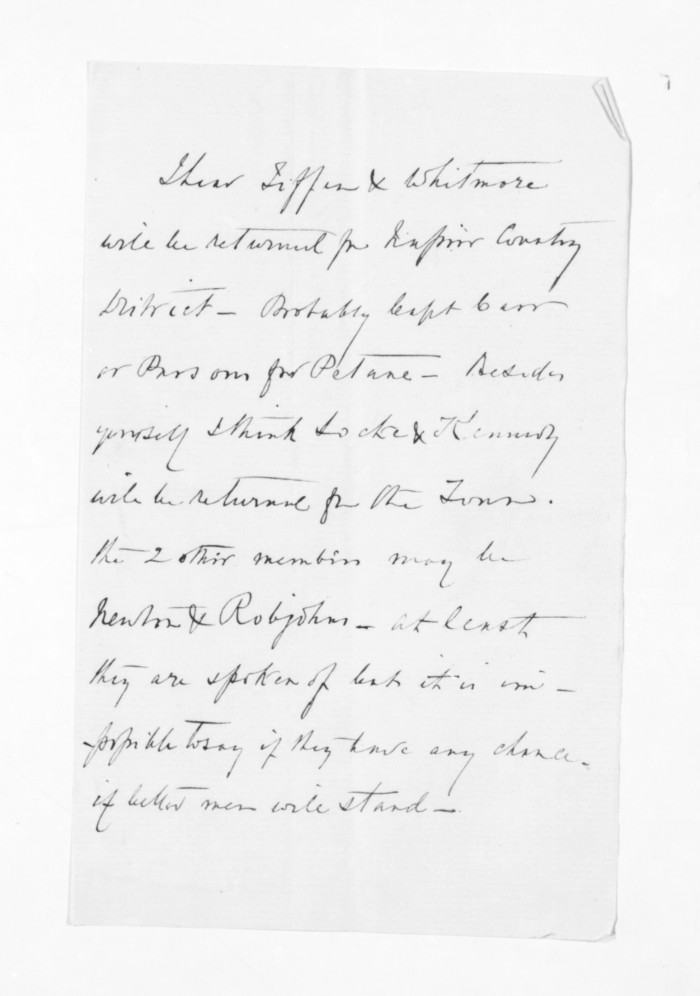 I hear Tiffen & Whitmore
will be returned for Napier Country
District — Probably Capt Carr
or Parsons for Petane — Besides
yourself I think Locke & Kennedy
will be returned for the Town.
the 2 other members may be
Newton & Robjohns — at least
they are spoken of but it is im-
-possible to say if they have any chance -
if better men will stand —